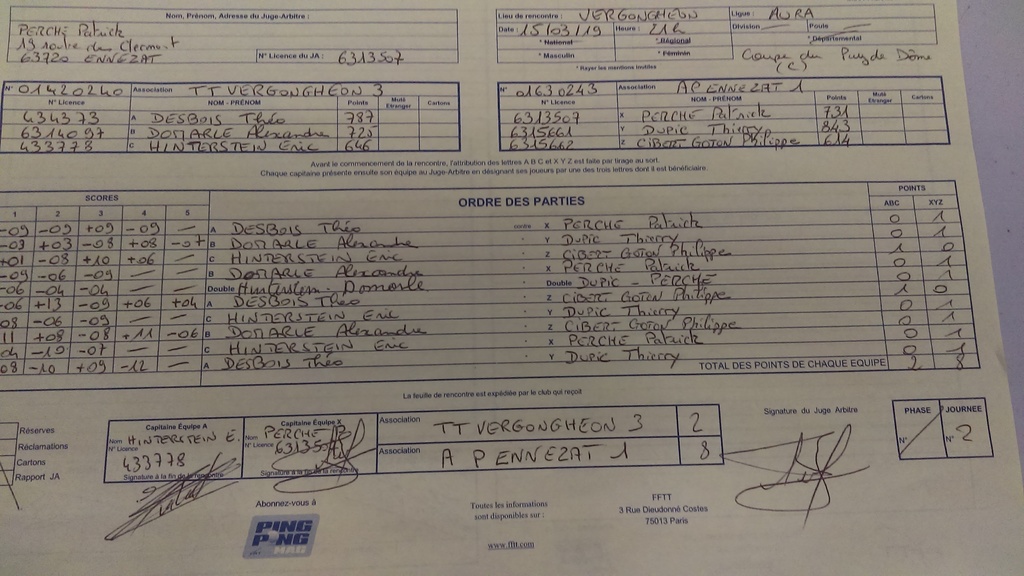 Nom, Prénom, Adresse du Juge-Arbitre :
PERCHE Patrick
63720 ENNEZAT
N° Licence du JA : 6313507
Lieu de rencontre : VERGONGHEON Ligue : AURA
Date : 15/03/19 Heure : 21h Division — Poule —
* National * Régional * Départemental
* Masculin * Féminin
* Rayer les mentions inutiles
Coupe du Puy de Dôme
(C)
N° 01420240 Association TT VERGONGHEON 3
N° Licence NOM - PRÉNOM Points Muté Etranger Cartons
434373 A DESBOIS Théo 787
6314097 B DOMARLE Alexandre 725
433778 C HINTERSTEIN Eric 646
N° 01630243 Association A P ENNEZAT 1
N° Licence NOM - PRÉNOM Points Muté Etranger Cartons
6313507 X PERCHE Patrick 731
6315661 Y DUPIC Thierry 843
6315662 Z CIBERT GOTON Philippe 614
Avant le commencement de la rencontre, l'attribution des lettres A B C et X Y Z est faite par tirage au sort.
Chaque capitaine présente ensuite son équipe au Juge-Arbitre en désignant ses joueurs par une des trois lettres dont il est bénéficiaire.
SCORES ORDRE DES PARTIES POINTS
1 2 3 4 5 ABC XYZ
-09 -09 +09 -09 — A DESBOIS Théo contre X PERCHE Patrick 0 1
-03 +03 -08 +08 -07 B DOMARLE Alexandre Y DUPIC Thierry 0 1
+01 -08 +10 +06 — C HINTERSTEIN Eric Z CIBERT GOTON Philippe 1 0
-09 -06 -09 — — B DOMARLE Alexandre X PERCHE Patrick 0 1
-06 -04 -04 — — Double Hinterstein - Domarle Double DUPIC - PERCHE 0 1
-06 +13 -09 +06 +04 A DESBOIS Théo Z CIBERT GOTON Philippe 1 0
08 -06 -09 — — C HINTERSTEIN Eric Y DUPIC Thierry 0 1
11 +08 -08 +11 -06 B DOMARLE Alexandre Z CIBERT GOTON Philippe 0 1
04 -10 -07 — — C HINTERSTEIN Eric X PERCHE Patrick 0 1
08 -10 +09 -12 — A DESBOIS Théo Y DUPIC Thierry 0 1
TOTAL DES POINTS DE CHAQUE EQUIPE 2 8
La feuille de rencontre est expédiée par le club qui reçoit
Réserves
Réclamations
Cartons
Rapport JA
Capitaine Équipe A
Nom HINTERSTEIN E.
N° Licence
433778
Signature à la fin de la rencontre
Capitaine Équipe X
Nom PERCHE P.
N° Licence 6313507
Signature à la fin de la rencontre
Association TT VERGONGHEON 3 2
Association A P ENNEZAT 1 8
Signature du Juge Arbitre
PHASE JOURNEE
N° N° 2
Abonnez-vous à
PING PONG MAG
Toutes les informations
sont disponibles sur :
www.fftt.com
FFTT
3 Rue Dieudonné Costes
75013 Paris